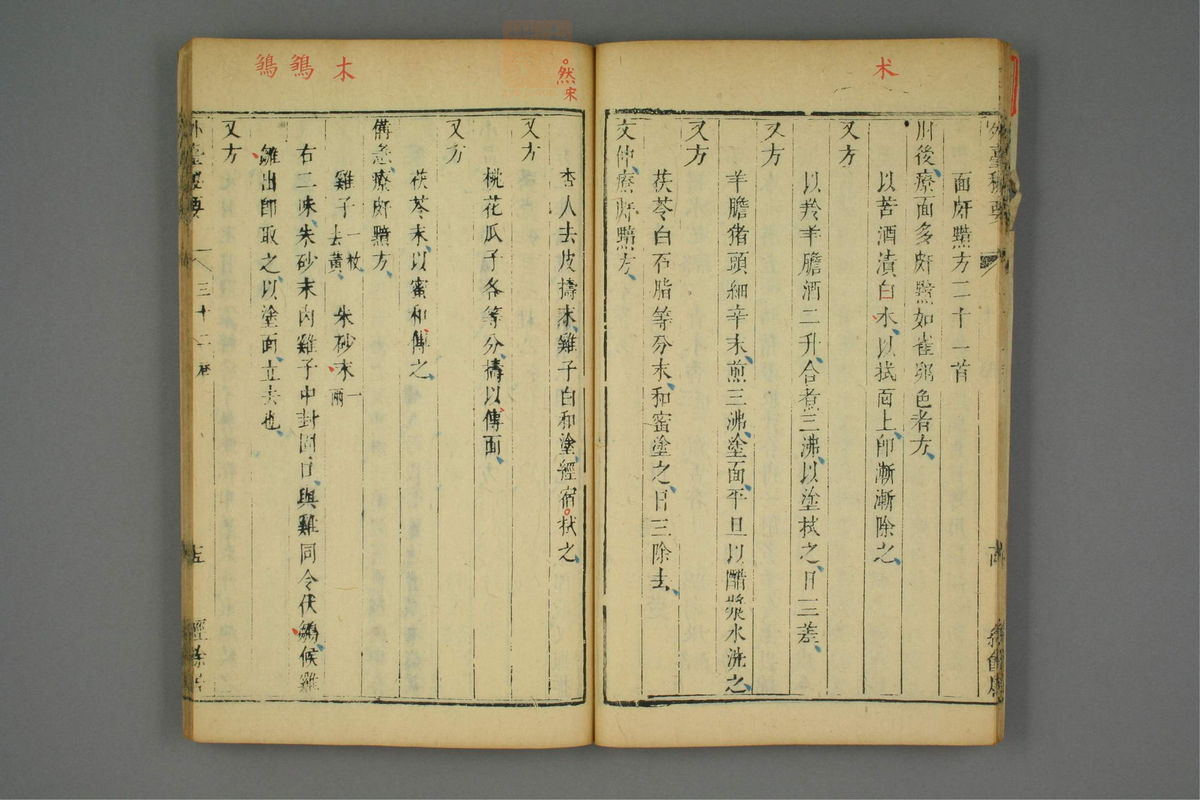 朮
外臺秘要
面皯䵟方二十一首
肘後療面多皯䵟如雀卵色者方
以苦酒漬白木以拭面上卽漸漸除之
又方
以羚羊膽酒二升合煮三沸以塗拭之日三差
又方
羊膽猪頭細辛末煎三沸塗面平旦以醋漿水洗之
又方
茯苓白石脂等分末和蜜塗之日三除去
文仲療皯䵟方
然宋
杏人去皮擣末雞子白和塗經宿拭之
又方
桃花瓜子各等分擣以傅面
又方
茯苓末以蜜和傅之
備急療皯䵟方
雞子一枚去黃 朱砂末一兩
右二味朱砂末內雞子中封固口與雞同令伏鶵候雞
雛出卽取之以塗面立去也
又方
木
鶵
鶵
外臺秘要 三十二
經餘居